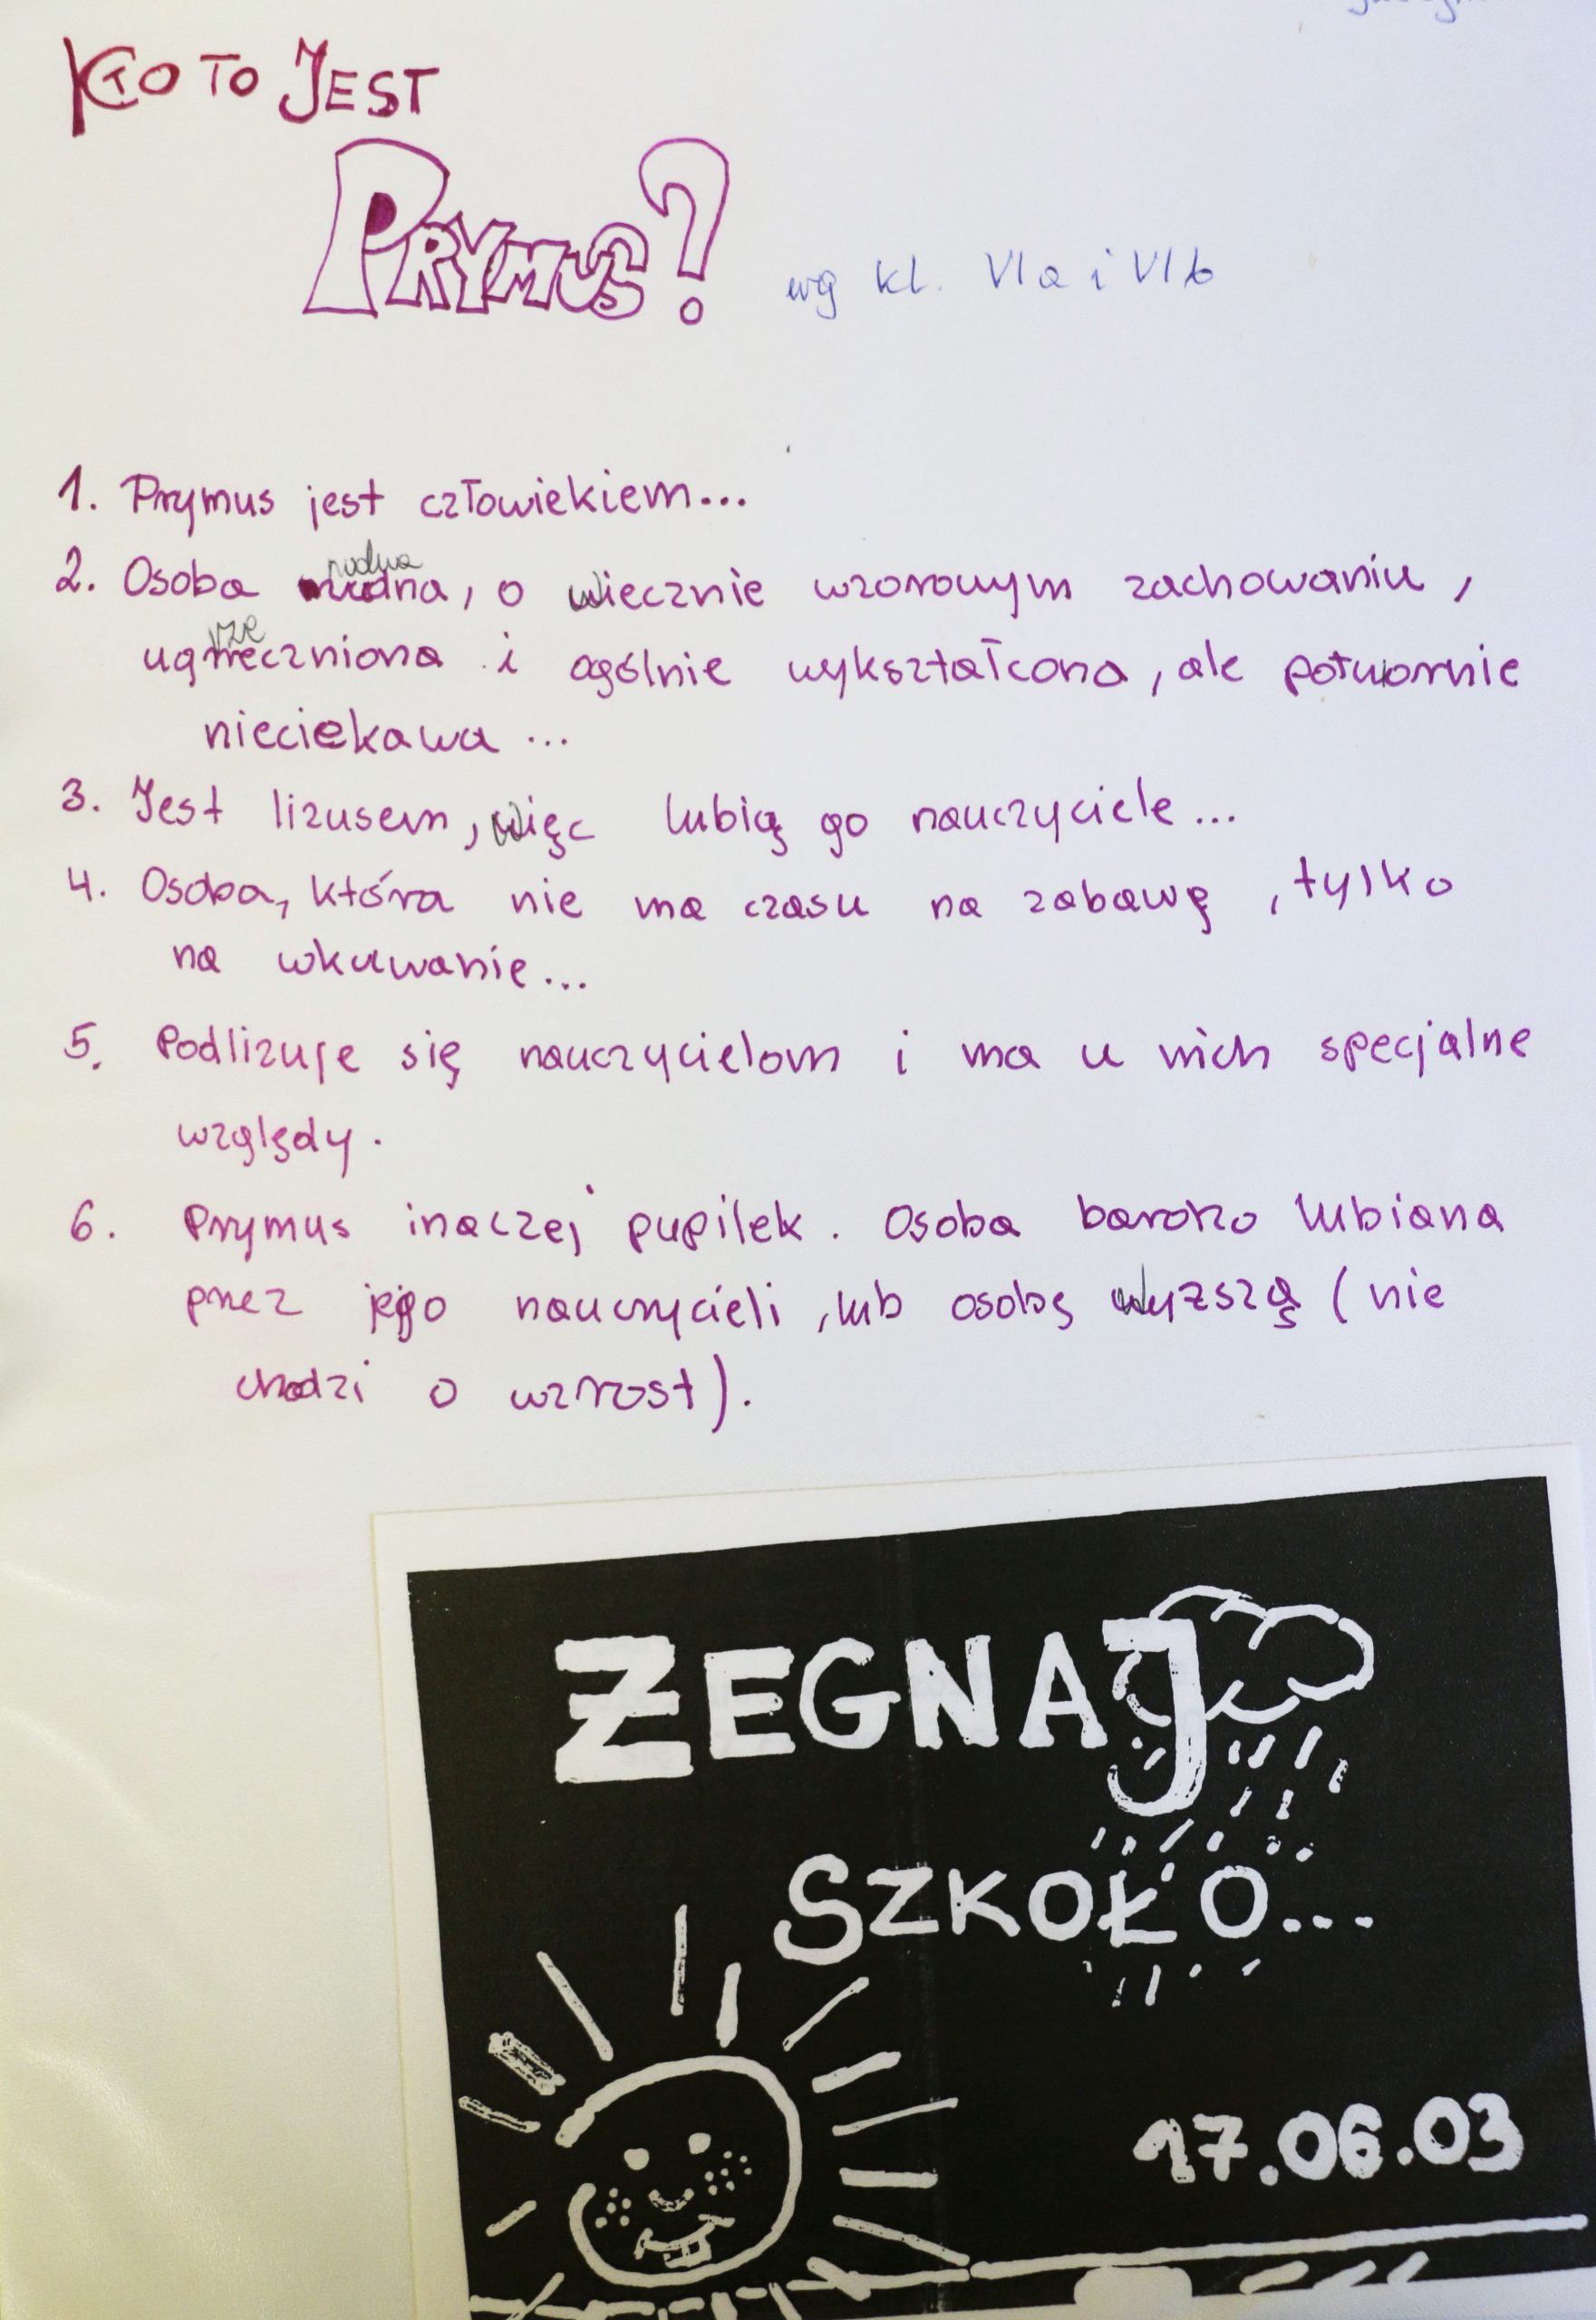 KTO TO JEST
PRYMUS?
wg kl. VIa i VIb
1. Prymus jest człowiekiem...
nudna
2. Osoba nudna, o wiecznie wzorowym zachowaniu,
rze
ugrzeczniona i ogólnie wykształcona, ale potwornie
nieciekawa...
3. Jest lizusem, więc lubią go nauczyciele...
4. Osoba, która nie ma czasu na zabawę, tylko
na wkuwanie...
5. Podlizuje się nauczycielom i ma u nich specjalne
względy.
6. Prymus inaczej pupilek. Osoba bardzo lubiana
przez jego nauczycieli, lub osobę wyższą (nie
chodzi o wzrost).
ŻEGNAJ
SZKOŁO...
17.06.03